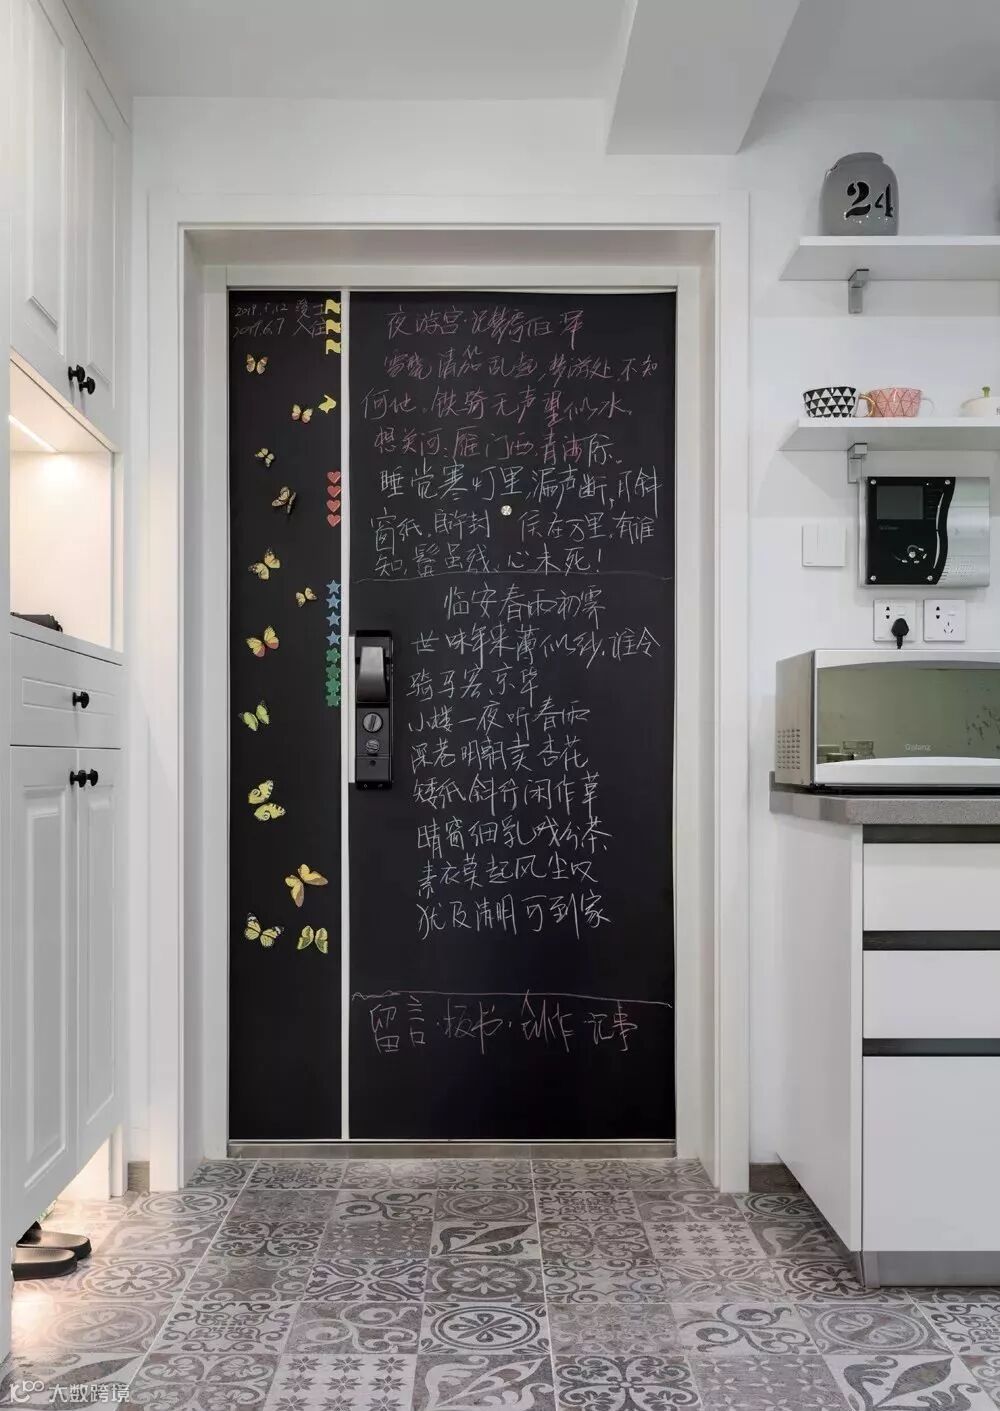 2019.5.12 爱士
2019.6.7 入住
夜游宫·记梦寄伯浑
雪晓清笳乱起,梦游处,不知
何地。铁骑无声望似水。
想关河:雁门西,青海际。
睡觉寒灯里,漏声断,月斜
窗纸。自许封侯在万里。有谁
知,鬓虽残,心未死!
临安春雨初霁
世味年来薄似纱,谁令
骑马客京华
小楼一夜听春雨
深巷明朝卖杏花
矮纸斜行闲作草
晴窗细乳戏分茶
素衣莫起风尘叹
犹及清明可到家
留言·板书·创作·记事
24
Galanz
大数跨境